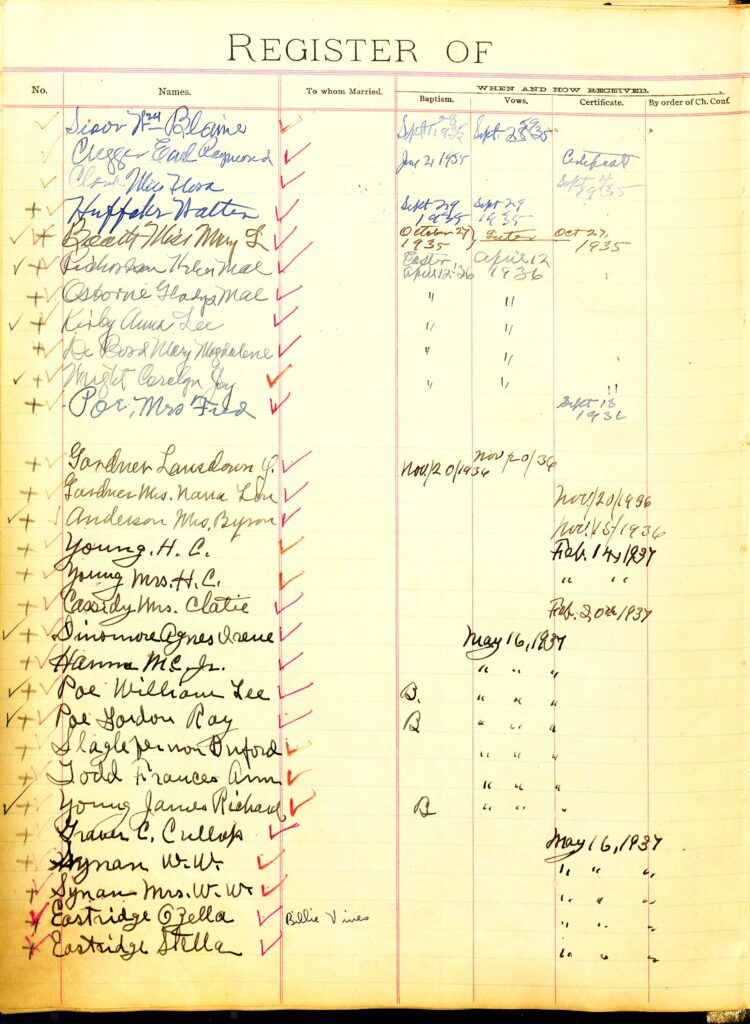 REGISTER OF
No. Names. To whom Married. WHEN AND HOW RECEIVED.
Baptism. Vows. Certificate. By order of Ch. Conf
Blaine Sept 28 1935 Sept 29 35
Cregger Earl Raymond June 21 1935 Certificat
Clark Miss Nora Sept 4 1935
Huffaker Walter Sept 29 1935 Sept 29 1935
Booth Miss Mary L October 27 1935 Oct 27, 1935
Helen Mae Easter, April 12-26 April 12 1936
Osborne Gladys Mae " "
Kirby Anna Lee " "
De Bord Mary Magdalene " "
Wright Carolyn Joy " " "
Poe, Mrs Fred Sept 18 1936
Gardner Lansdown Y. Nov/20/1936 Nov 20/36
Gardner Mrs. Nana Lou Nov/20/1936
Anderson Mrs. Byron Nov/15/1936
Young. H. C. Feb. 14, 1937
Young Mrs. H. C. " "
Cassidy Mrs. Clatie Feb. 20th 1937
Dinsmore Agnes Irene May 16, 1937
Hanna M.C. Jr. " " "
Poe William Lee B. " " "
Poe Gordon Ray B " " "
Slagle Vernon Buford " " "
Todd Frances Ann " " "
Young James Richard B " " "
Graver C. Cullop May 16, 1937
Synan W. W. " " "
Synan Mrs. W. W. " " "
Eastridge Ozella Billie Vines " " "
Eastridge Stella " " "